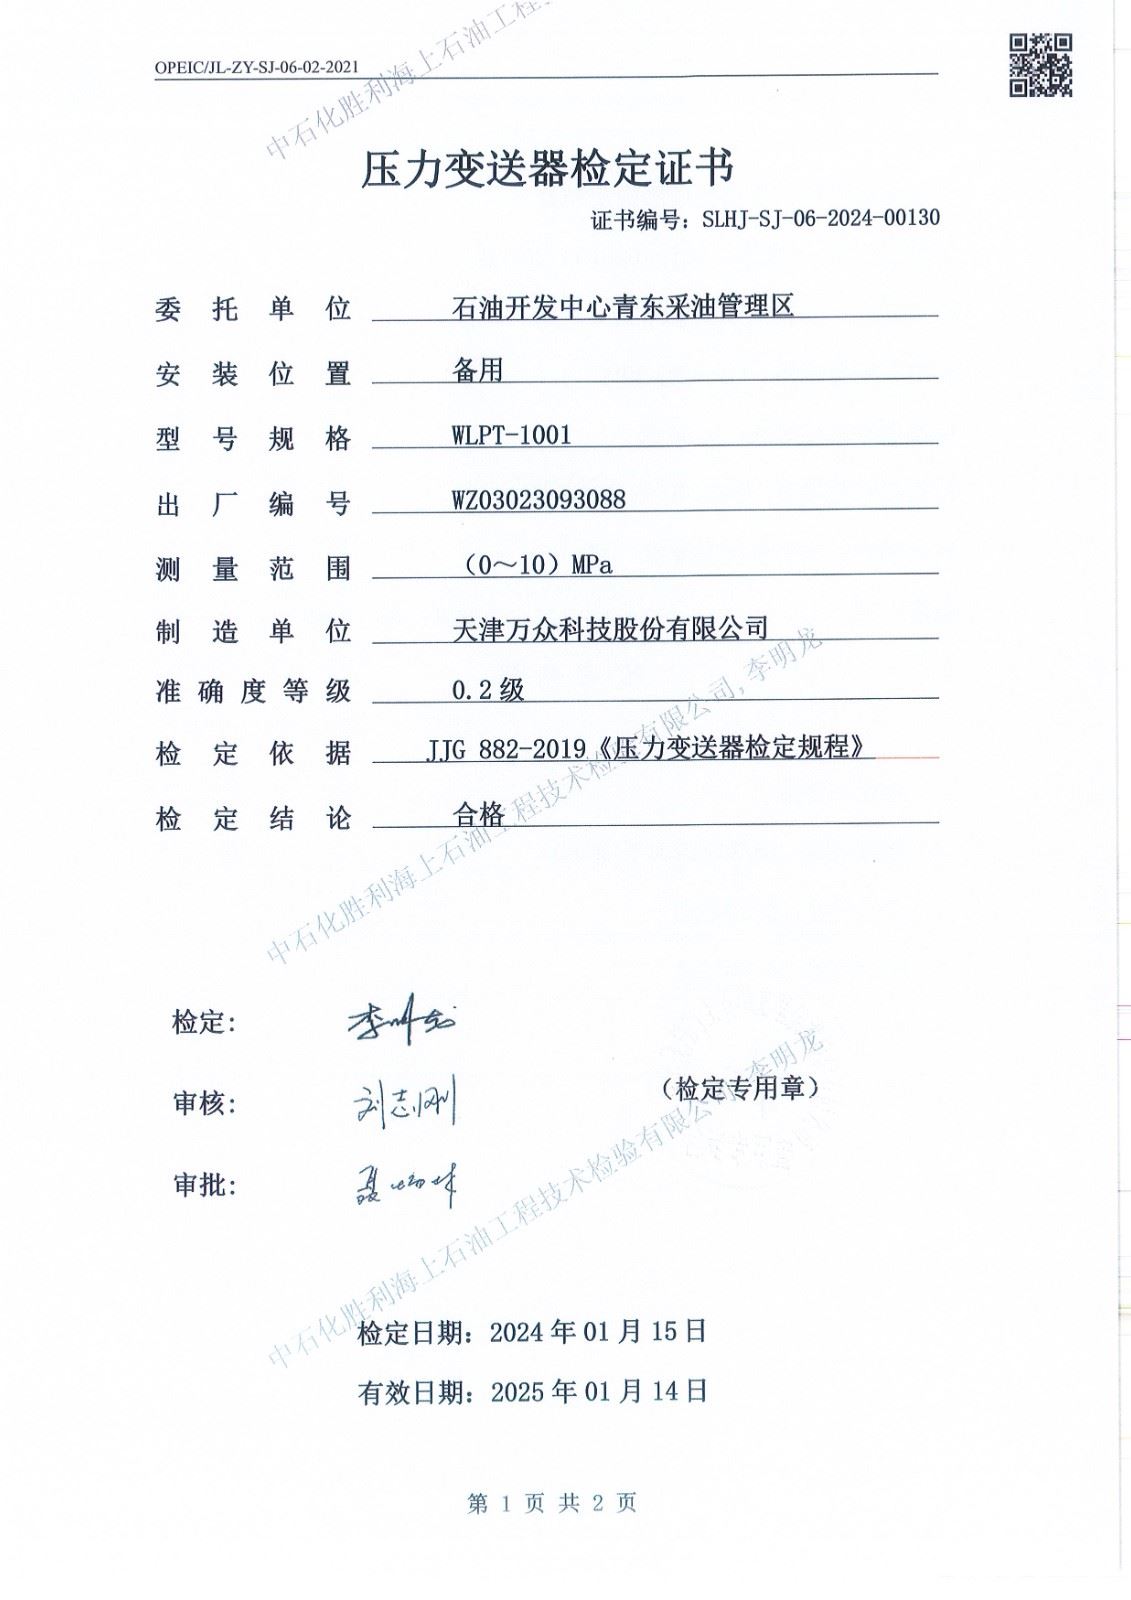 中石化胜利海上石油工程
OPEIC/JL-ZY-SJ-06-02-2021
压力变送器检定证书
证书编号：SLHJ-SJ-06-2024-00130
委托单位 石油开发中心青东采油管理区
安装位置 备用
型号规格 WLPT-1001
出厂编号 WZ03023093088
测量范围 （0～10）MPa
制造单位 天津万众科技股份有限公司
准确度等级 0.2级
检定依据 JJG 882-2019《压力变送器检定规程》
检定结论 合格
中石化胜利海上石油工程技术检验有限公司,李明龙
检定： 李明龙
审核： 刘志刚
（检定专用章）
审批：
中石化胜利海上石油工程技术检验有限公司,李明龙
检定日期：2024年01月15日
有效日期：2025年01月14日
第 1 页 共 2 页